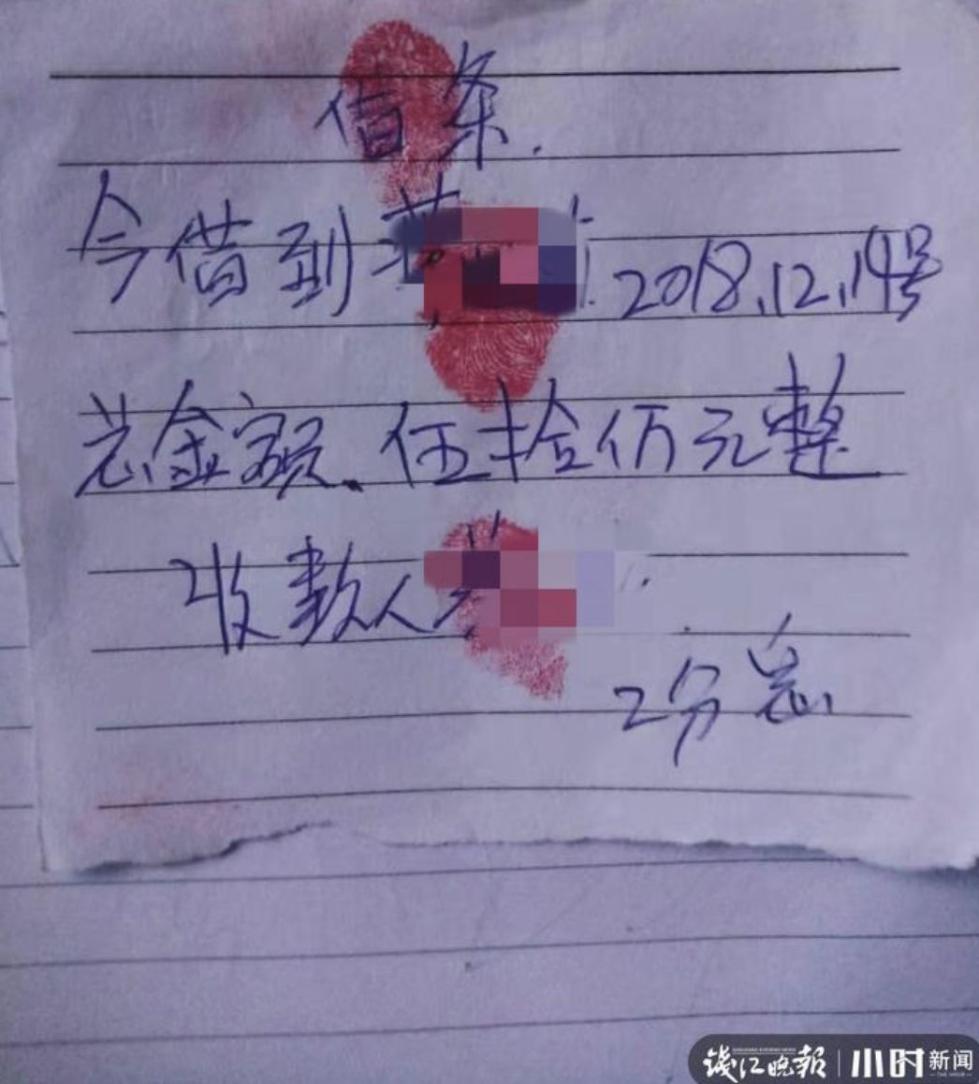 借条.
今借到 2018.12.14号
总金额、伍拾仟元整
收款人
2分息
钱江晚报 | 小时新闻